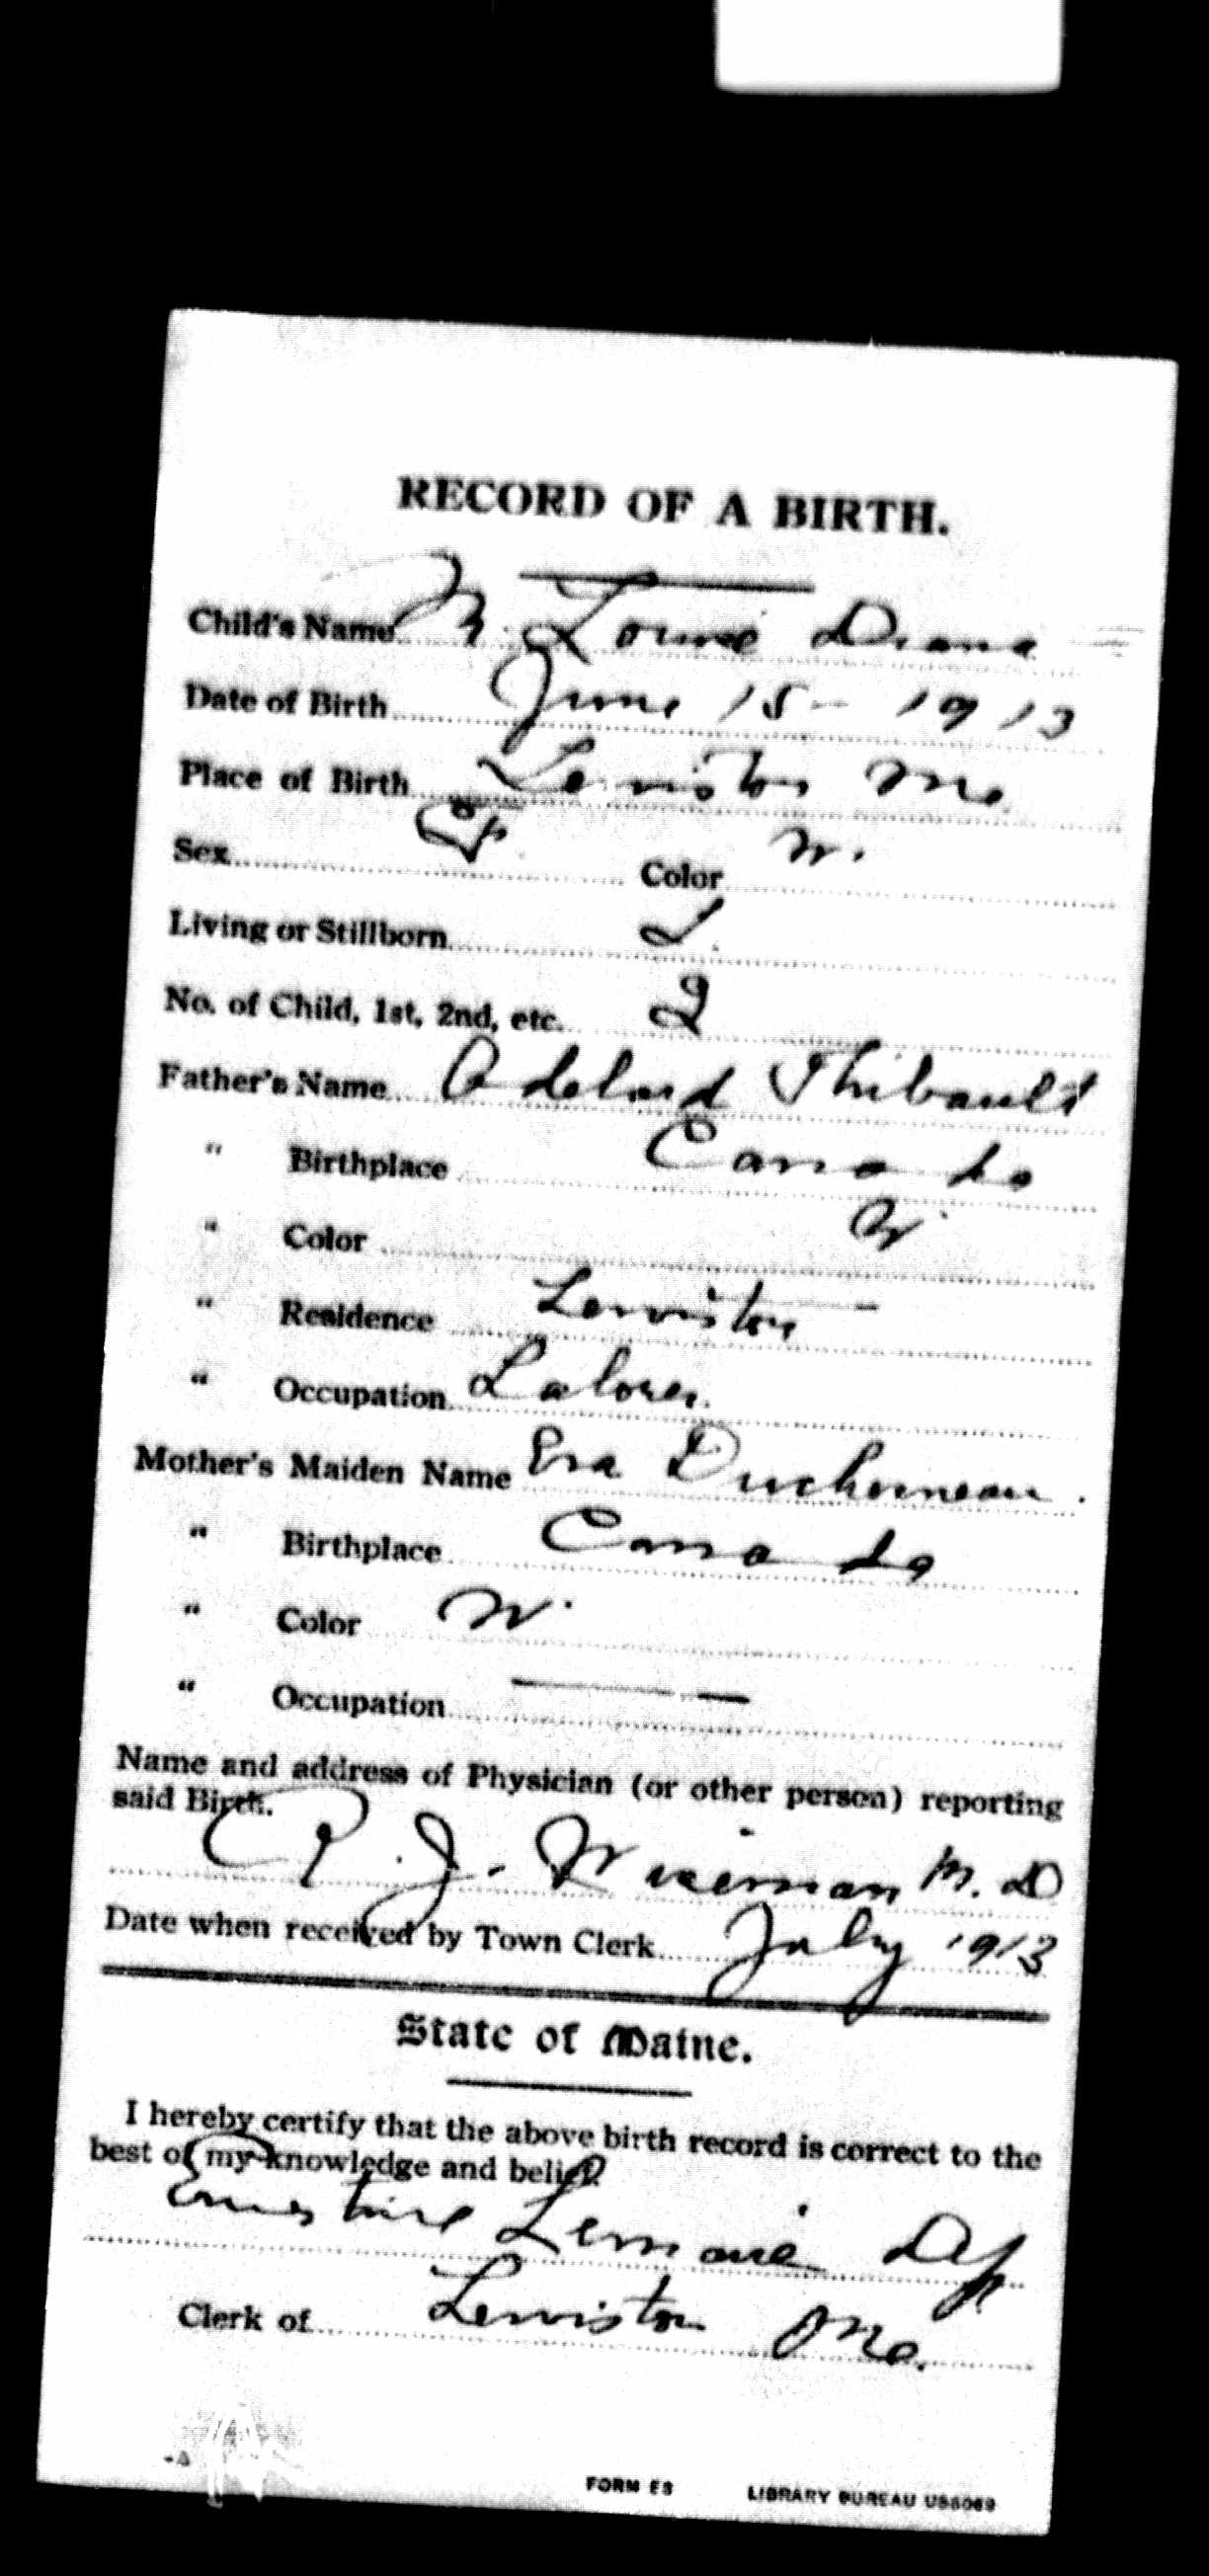 RECORD OF A BIRTH.
Child's Name M. Louise Diana
Date of Birth June 15 - 1913
Place of Birth Lewiston Me
Sex F Color W.
Living or Stillborn L
No. of Child, 1st, 2nd, etc. 2
Father's Name Adelard Thibault
" Birthplace Canada
" Color W
" Residence Lewiston
" Occupation Laborer
Mother's Maiden Name Eva Ducherneau.
" Birthplace Canada
" Color W.
" Occupation
Name and address of Physician (or other person) reporting
said Birth.
R. J. Wiseman M. D
Date when received by Town Clerk July 1913
State of Maine.
I hereby certify that the above birth record is correct to the
best of my knowledge and belief.
Ernestine Lemaire Dep
Clerk of Lewiston Me.
FORM E3 LIBRARY BUREAU